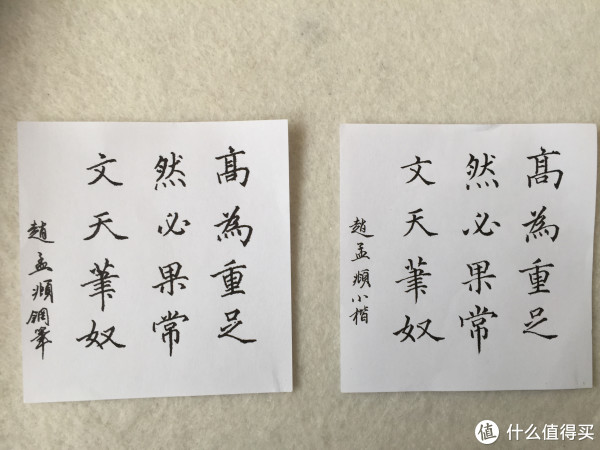 髙為重足
然必果常
文天筆奴
趙孟頫鋼筆
髙為重足
然必果常
文天筆奴
趙孟頫小楷
值 什么值得买